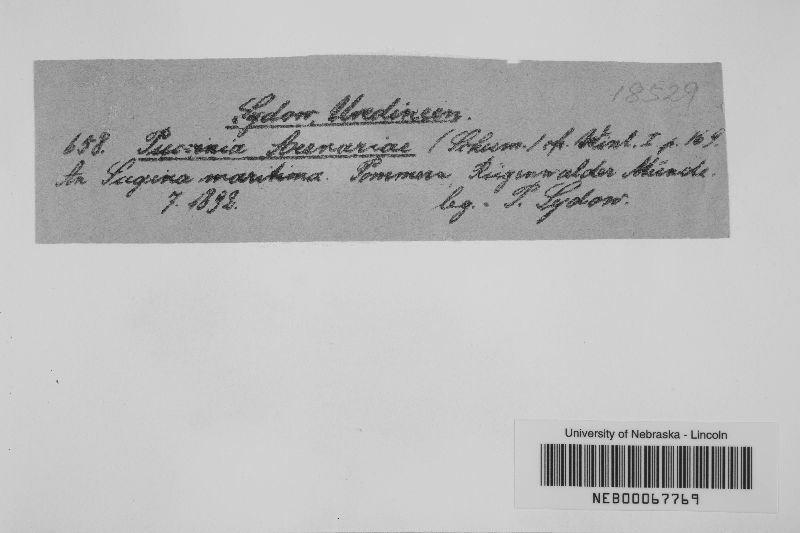 18529
Sydow, Uredineen.
658. Puccinia Arenariae (Schum.) cf. Wint. I p. 169.
An Sagina maritima. Pommern, Rügenwalder Münde.
7. 1892. leg. - P. Sydow.
University of Nebraska - Lincoln
NEB00067769